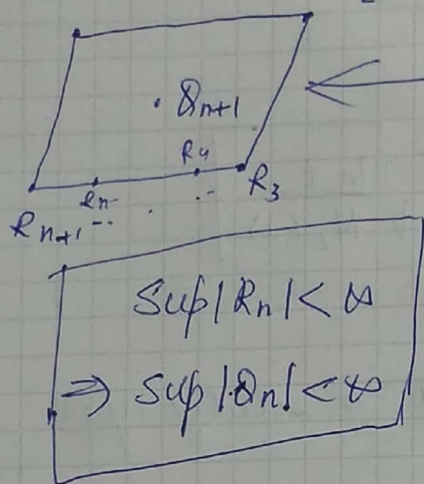 . Qn+1
R4
R3
Rn
Rn+1 -- . . -
Sup|Rn| < ∞
⇒ Sup|Qn| < ∞